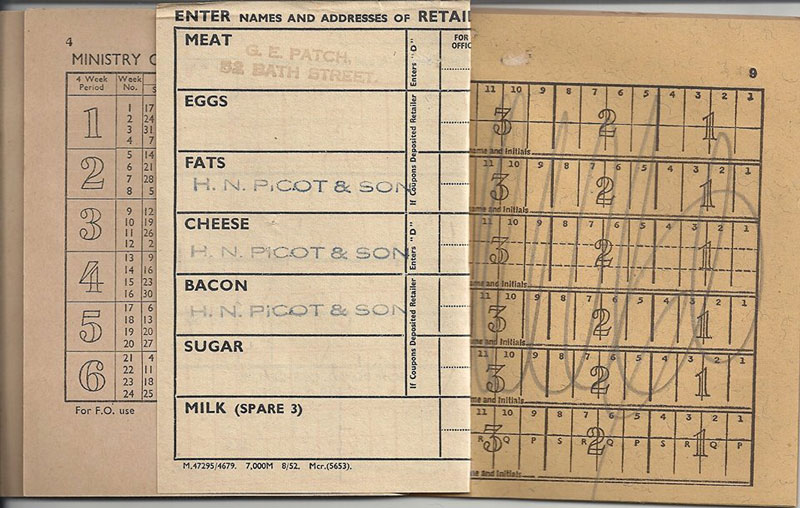 4
MINISTRY
4 Week Period
Week No.
1
1 17
2 24
3 31
4 7
2
5 14
6 21
7 28
8 5
3
9 12
10 19
11 26
12 2
4
13 9
14 16
15 23
16 30
5
17 6
18 13
19 20
20 27
6
21 4
22 11
23 18
24 25
For F.O. use
ENTER NAMES AND ADDRESSES OF RETAI
MEAT
G. E. PATCH,
52 BATH STREET.
EGGS
FATS
H. N. PICOT & SON
CHEESE
H. N. PICOT & SON
BACON
H. N. PICOT & SON
SUGAR
MILK (SPARE 3)
If Coupons Deposited Retailer Enters "D"
If Coupons Deposited Retailer Enters "D"
FOR
OFFIC
M.47295/4679. 7,000M 8/52. Mcr.(5653).
9
11 10 9 8 7 6 5 4 3 2 1
3 2 1
me and Initials
11 10 9 8 7 6 5 4 3 2 1
3 2 1
me and Initials
11 10 9 8 7 6 5 4 3 2 1
3 2 1
me and Initials
11 10 9 8 7 6 5 4 3 2 1
3 2 1
me and Initials
11 10 9 8 7 6 5 4 3 2 1
3 2 1
me and Initials
11 10 9 8 7 6 5 4 3 2 1
3 2 1
R Q P S R Q P S R Q P
me and Initials